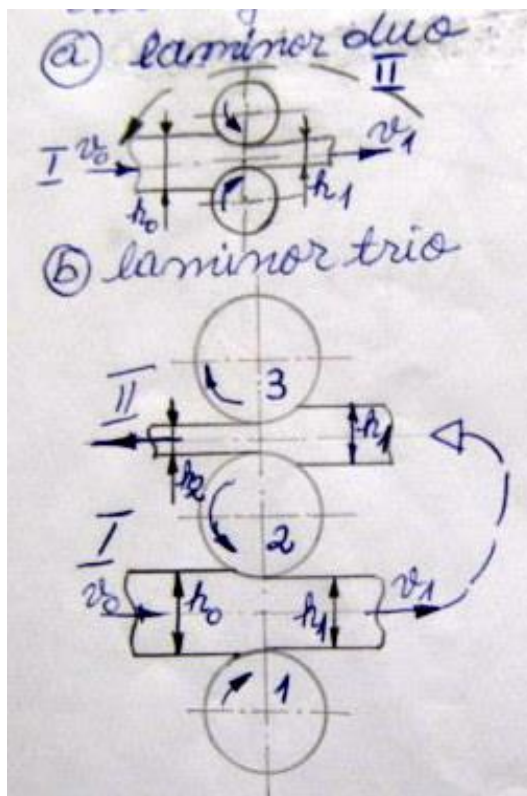 ⓐ laminor duo
II
I v₀ v₁
h₀ h₁
ⓑ laminor trio
3
II h₁
h₂
I 2
v₀ h₀ h₁ v₁
1